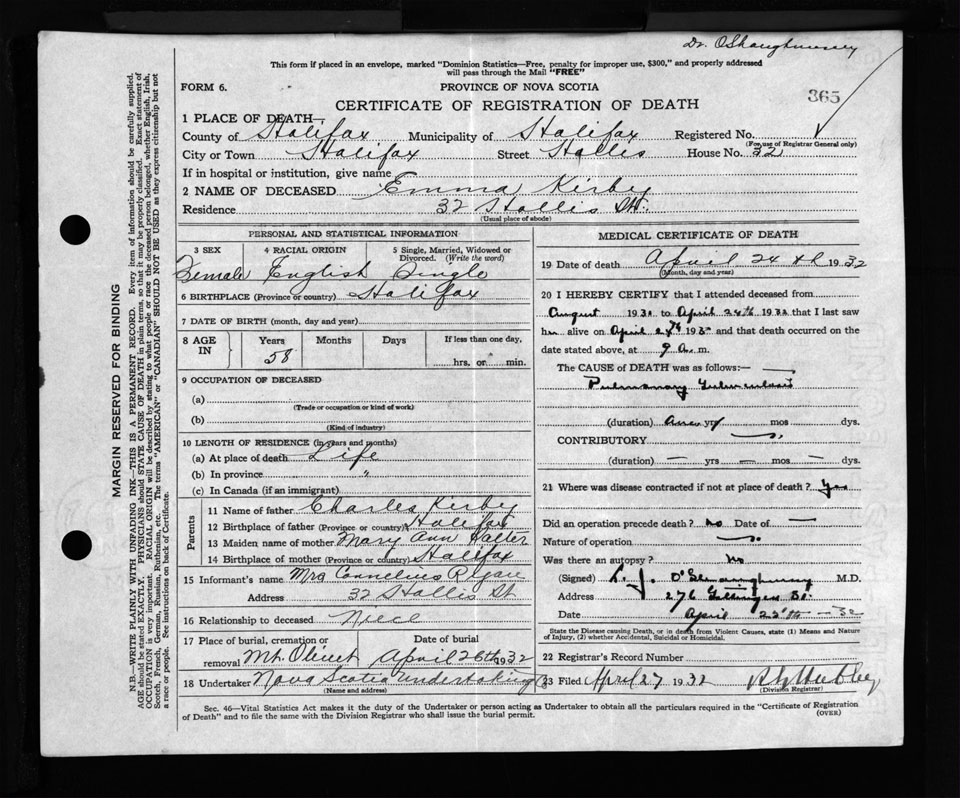 Dr. O'Shaughnessy
This form if placed in an envelope, marked "Dominion Statistics—Free, penalty for improper use, $300," and properly addressed
will pass through the Mail "FREE"
FORM 6.
PROVINCE OF NOVA SCOTIA
365
CERTIFICATE OF REGISTRATION OF DEATH
1 PLACE OF DEATH—
County of Halifax Municipality of Halifax Registered No.
(For use of Registrar General only)
City or Town Halifax Street Hollis House No. 32
If in hospital or institution, give name
2 NAME OF DECEASED Emma Kirby
Residence 32 Hollis St.
(Usual place of abode)
PERSONAL AND STATISTICAL INFORMATION
3 SEX 4 RACIAL ORIGIN 5 Single, Married, Widowed or Divorced. (Write the word)
Female English Single
6 BIRTHPLACE (Province or country) Halifax
7 DATE OF BIRTH (month, day and year)
8 AGE IN Years Months Days If less than one day,
58 hrs. or min.
9 OCCUPATION OF DECEASED
(a)
(Trade or occupation or kind of work)
(b)
(Kind of industry)
10 LENGTH OF RESIDENCE (in years and months)
(a) At place of death Life
(b) In province "
(c) In Canada (if an immigrant)
Parents
11 Name of father Charles Kirby
12 Birthplace of father (Province or country) Halifax
13 Maiden name of mother Mary Ann
14 Birthplace of mother (Province or country) Halifax
15 Informant's name Mrs Cornelius Regan
Address 32 Hollis St
16 Relationship to deceased Niece
17 Place of burial, cremation or Date of burial
removal Mt. Olivet April 26th 1932
18 Undertaker Nova Scotia Undertaking Co
(Name and address)
MEDICAL CERTIFICATE OF DEATH
19 Date of death April 24th 1932
(Month, day and year)
20 I HEREBY CERTIFY that I attended deceased from
August 1931 to April 24th 1932 that I last saw
her alive on April 24th 193 and that death occurred on the
date stated above, at 9 a. m.
The CAUSE of DEATH was as follows:—
Pulmonary Tuberculosis
(duration) yrs mos dys.
CONTRIBUTORY
(duration) — yrs — mos — dys.
21 Where was disease contracted if not at place of death? Yes
Did an operation precede death? no Date of —
Nature of operation
Was there an autopsy? No
(Signed) L. J. O'Shaughnessy M.D.
Address 276 Gottingen St.
Date April
State the Disease causing Death, or in death from Violent Causes, state (1) Means and Nature
of Injury, (2) whether Accidental, Suicidal or Homicidal.
22 Registrar's Record Number
23 Filed April 27 1932
(Division Registrar)
Sec. 46—Vital Statistics Act makes it the duty of the Undertaker or person acting as Undertaker to obtain all the particulars required in the "Certificate of Registration
of Death" and to file the same with the Division Registrar who shall issue the burial permit.
(OVER)
MARGIN RESERVED FOR BINDING
N.B.—WRITE PLAINLY WITH UNFADING INK—THIS IS A PERMANENT RECORD. Every item of information should be carefully supplied.
AGE should be stated EXACTLY. PHYSICIANS should STATE CAUSE OF DEATH in plain terms, so that it may be properly classified. Exact statement of
OCCUPATION is very important. RACIAL ORIGIN will be described by stating to what people or race the deceased person belonged, whether English, Irish,
Scotch, French, German, Russian, Ruthenian, etc. The terms "AMERICAN" or "CANADIAN" SHOULD NOT BE USED as they express citizenship but not
a race or people. See instructions on back of Certificate.